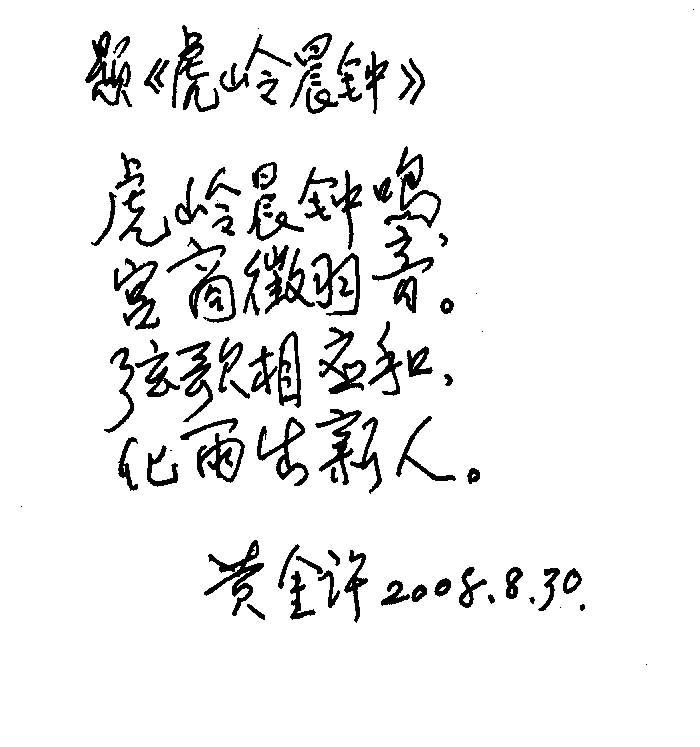 题《虎岭晨钟》
虎岭晨钟鸣，
宫商徵羽音。
弦歌相应和，
化雨出新人。
黄金许 2008.8.30.